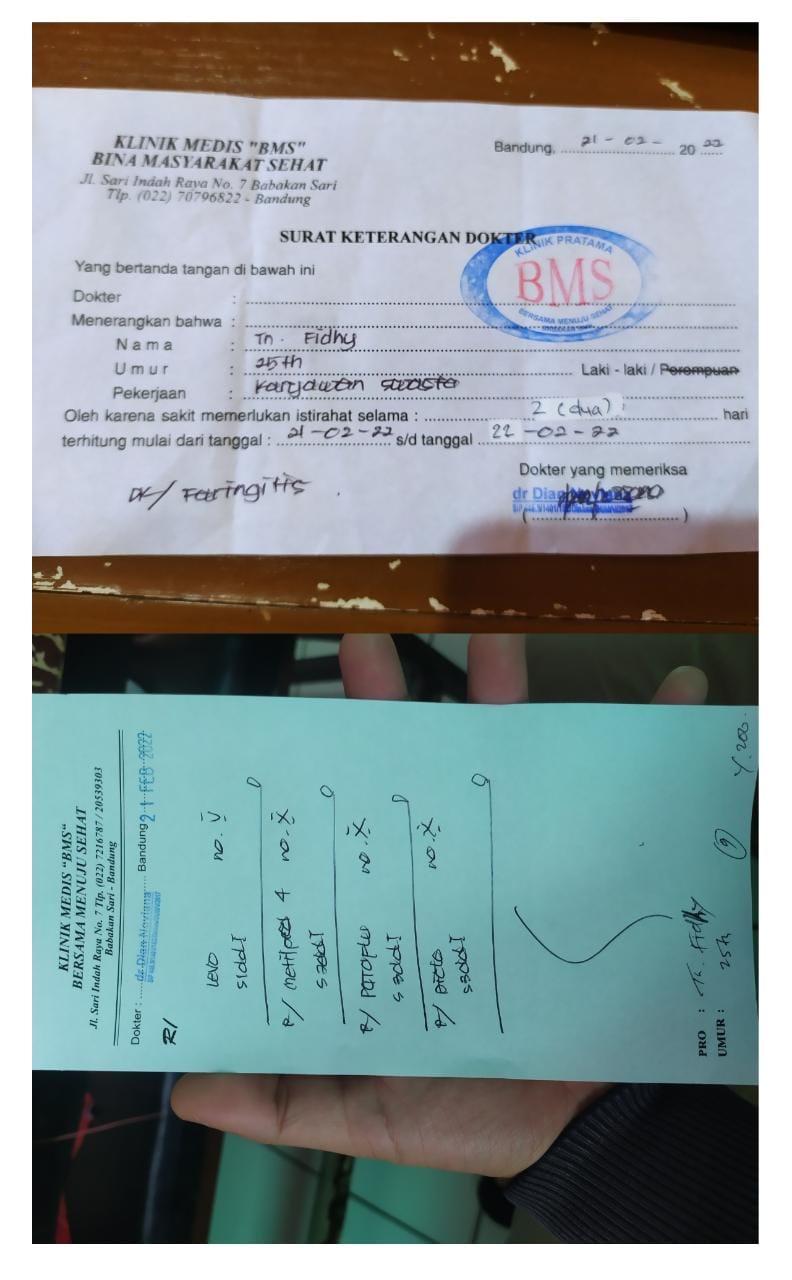 KLINIK MEDIS "BMS"
BINA MASYARAKAT SEHAT
Jl. Sari Indah Raya No. 7 Babakan Sari
Tlp. (022) 70796822 - Bandung
Bandung, 21 - 02 - 20 22
SURAT KETERANGAN DOKTER
KLINIK PRATAMA
BMS
BERSAMA MENUJU SEHAT
Yang bertanda tangan di bawah ini
Dokter :
Menerangkan bahwa :
Nama : Tn. Fidhy
Umur : 25th Laki - laki / Perempuan
Pekerjaan : Karyawan swasta
Oleh karena sakit memerlukan istirahat selama : 2 (dua) hari
terhitung mulai dari tanggal : 21-02-22 s/d tanggal 22-02-22
Dokter yang memeriksa
DK/ Faringitis
dr Dian Noviana
KLINIK MEDIS "BMS"
BERSAMA MENUJU SEHAT
Jl. Sari Indah Raya No. 7 Tlp. (022) 7216787 / 20539303
Babakan Sari - Bandung
Dokter : dr Dian Noviana Bandung 21 FEB 2022
R/
Levo no. V
S1ddI
R/ 4 no. X
S2ddI
R/ no. X
S3ddI
R/ no. X
S3ddI
PRO : Tn. Fidhy
UMUR : 25th